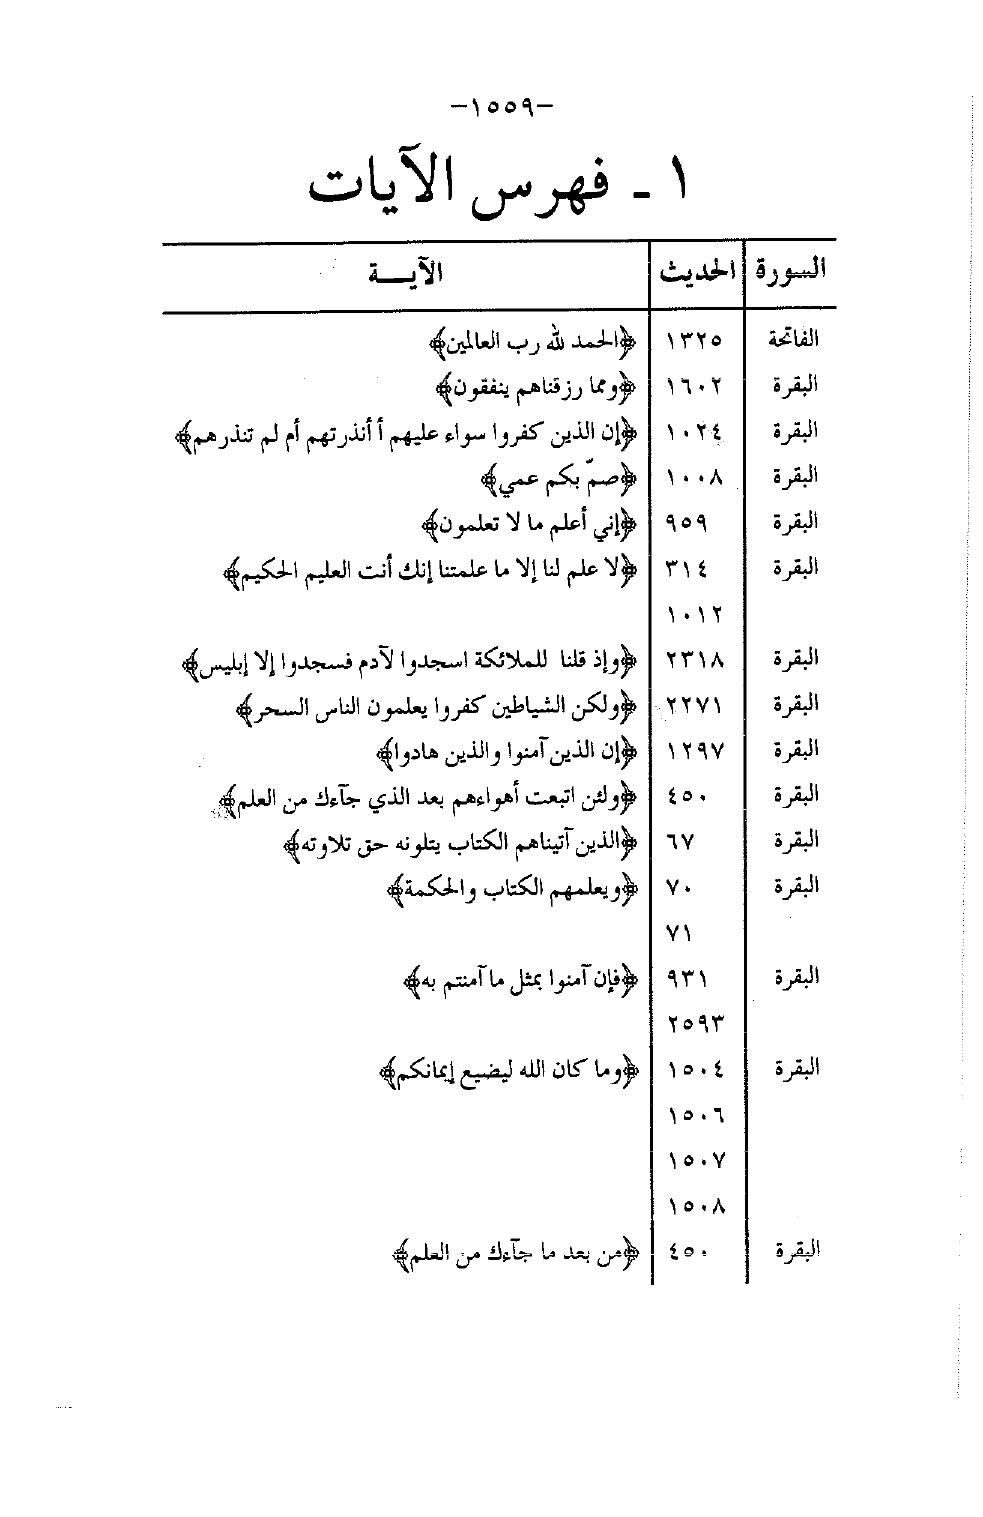 –١٥٥٩–
١ ـ فهرس الآيات
السورة الحديث الآيـــة
الفاتحة ١٣٢٥ ﴿الحمد لله رب العالمين﴾
البقرة ١٦٠٢ ﴿ومما رزقناهم ينفقون﴾
البقرة ١٠٢٤ ﴿إن الذين كفروا سواء عليهم أ أنذرتهم أم لم تنذرهم﴾
البقرة ١٠٠٨ ﴿صمّ بكم عمي﴾
البقرة ٩٥٩ ﴿إني أعلم ما لا تعلمون﴾
البقرة ٣١٤ ﴿لا علم لنا إلا ما علمتنا إنك أنت العليم الحكيم﴾
١٠١٢
البقرة ٢٣١٨ ﴿وإذ قلنا للملائكة اسجدوا لآدم فسجدوا إلا إبليس﴾
البقرة ٢٢٧١ ﴿ولكن الشياطين كفروا يعلمون الناس السحر﴾
البقرة ١٢٩٧ ﴿إن الذين آمنوا والذين هادوا﴾
البقرة ٤٥٠ ﴿ولئن اتبعت أهواءهم بعد الذي جآءك من العلم﴾
البقرة ٦٧ ﴿الذين آتيناهم الكتاب يتلونه حق تلاوته﴾
البقرة ٧٠ ﴿ويعلمهم الكتاب والحكمة﴾
٧١
البقرة ٩٣١ ﴿فإن آمنوا بمثل ما آمنتم به﴾
٢٥٩٣
البقرة ١٥٠٤ ﴿وما كان الله ليضيع إيمانكم﴾
١٥٠٦
١٥٠٧
١٥٠٨
البقرة ٤٥٠ ﴿من بعد ما جآءك من العلم﴾